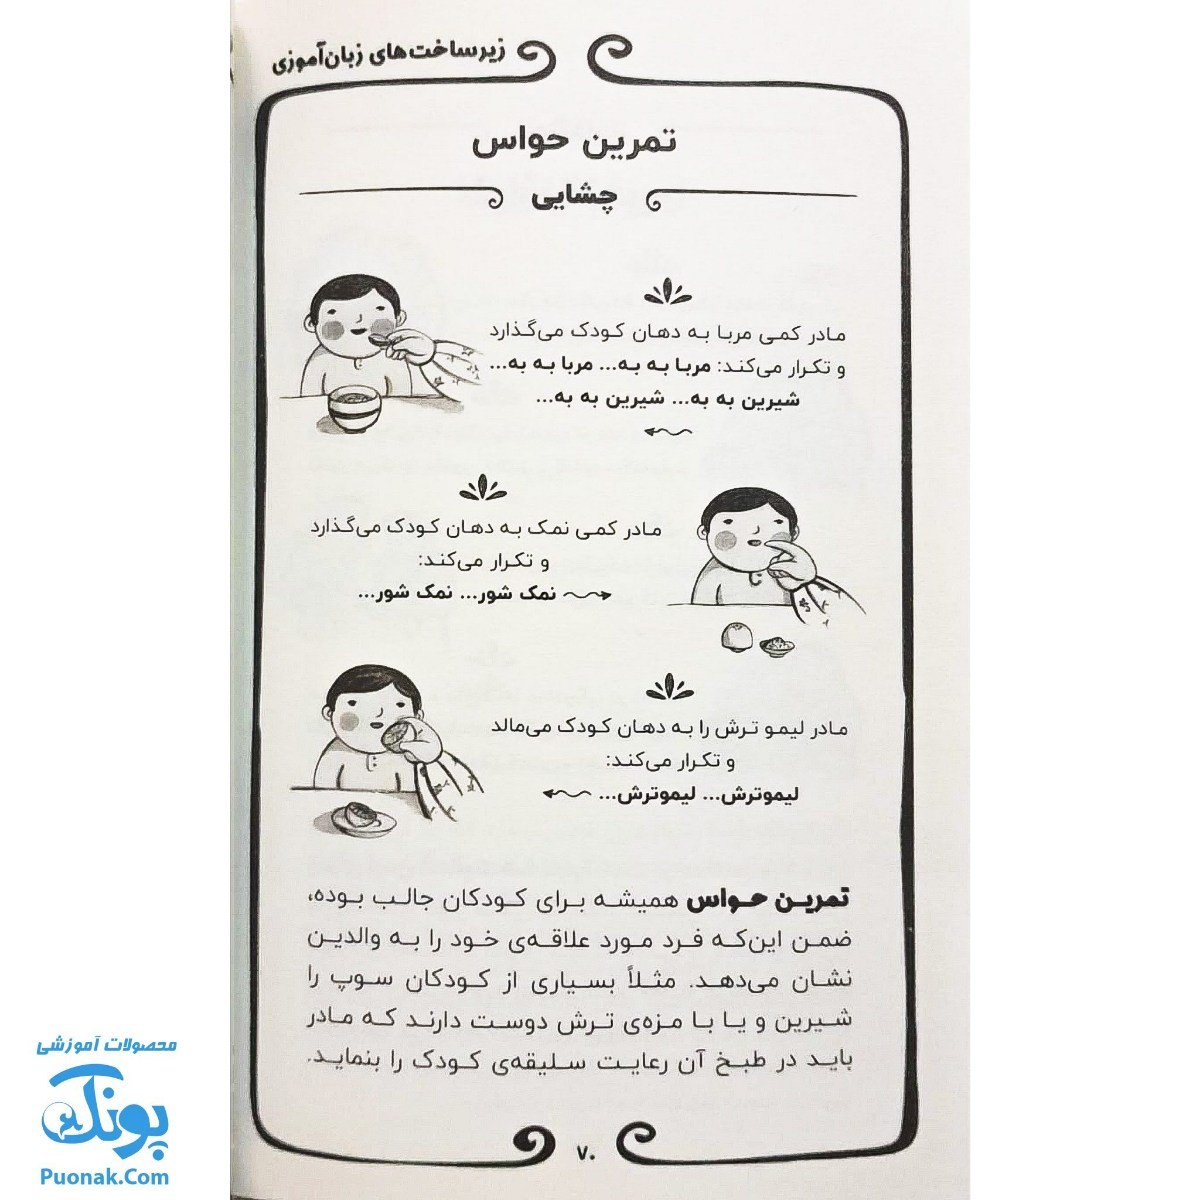 زیرساخت‌های زبان‌آموزی
تمرین حواس
چشایی
مادر کمی مربا به دهان کودک می‌گذارد
و تکرار می‌کند: مربا به به... مربا به به...
شیرین به به... شیرین به به...
مادر کمی نمک به دهان کودک می‌گذارد
و تکرار می‌کند:
نمک شور... نمک شور...
مادر لیمو ترش را به دهان کودک می‌مالد
و تکرار می‌کند:
لیموترش... لیموترش...
تمرین حواس همیشه برای کودکان جالب بوده،
ضمن این‌که فرد مورد علاقه‌ی خود را به والدین
نشان می‌دهد. مثلاً بسیاری از کودکان سوپ را
شیرین و یا با مزه‌ی ترش دوست دارند که مادر
باید در طبخ آن رعایت سلیقه‌ی کودک را بنماید.
۷۰
محصولات آموزشی
پونک
Puonak.Com